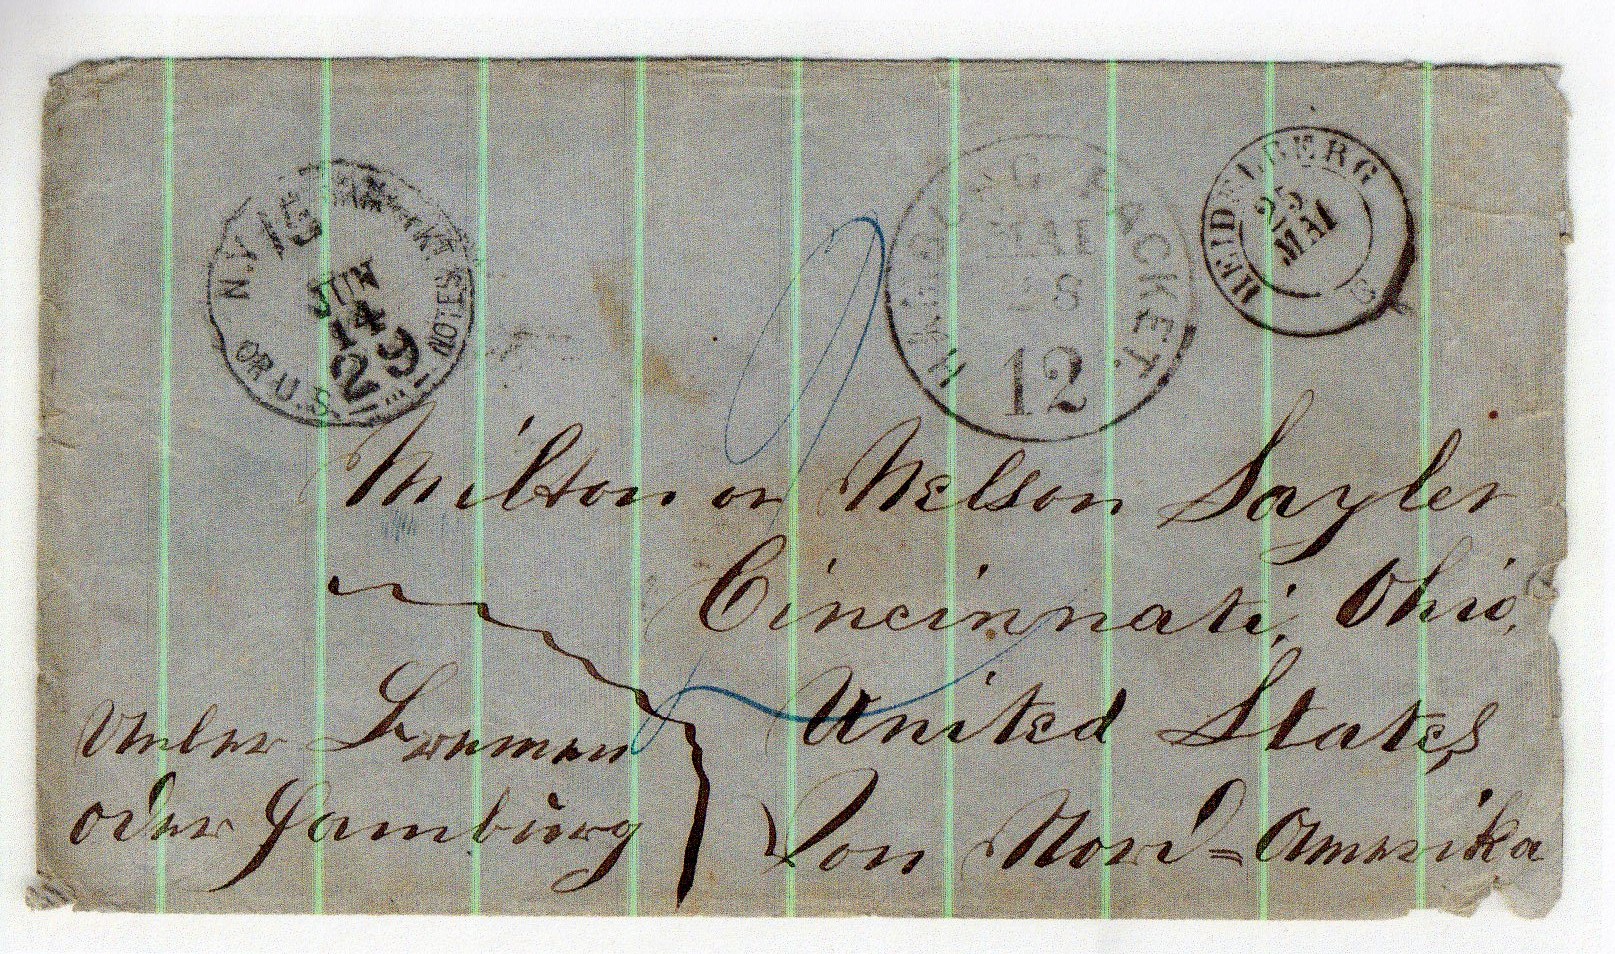 N.Y. 15 NOTES
JUN
14
29
OR U.S.
HAMBURG PACKET.
MAI
28
12
HEIDELBERG
25
MAI
Milton or Nelson Sayler
Cincinnati, Ohio,
United States
Von Nord=Amerika
Ueber Bremen
oder Hamburg